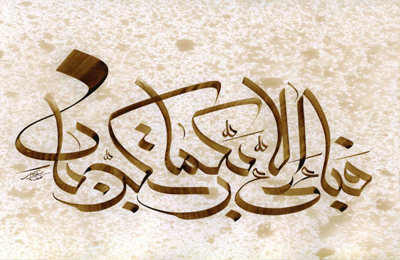 فبأی آلاء ربکما تکذبان